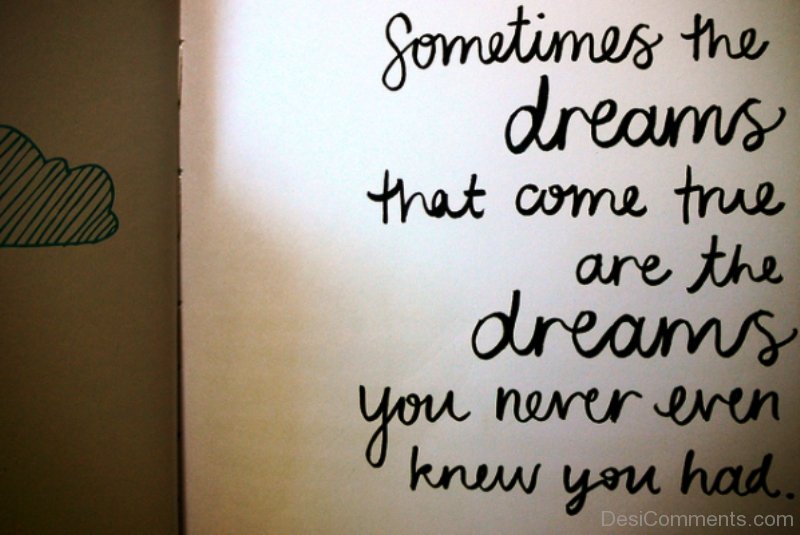 Sometimes the
dreams
that come true
are the
dreams
you never even
knew you had.
DesiComments.com